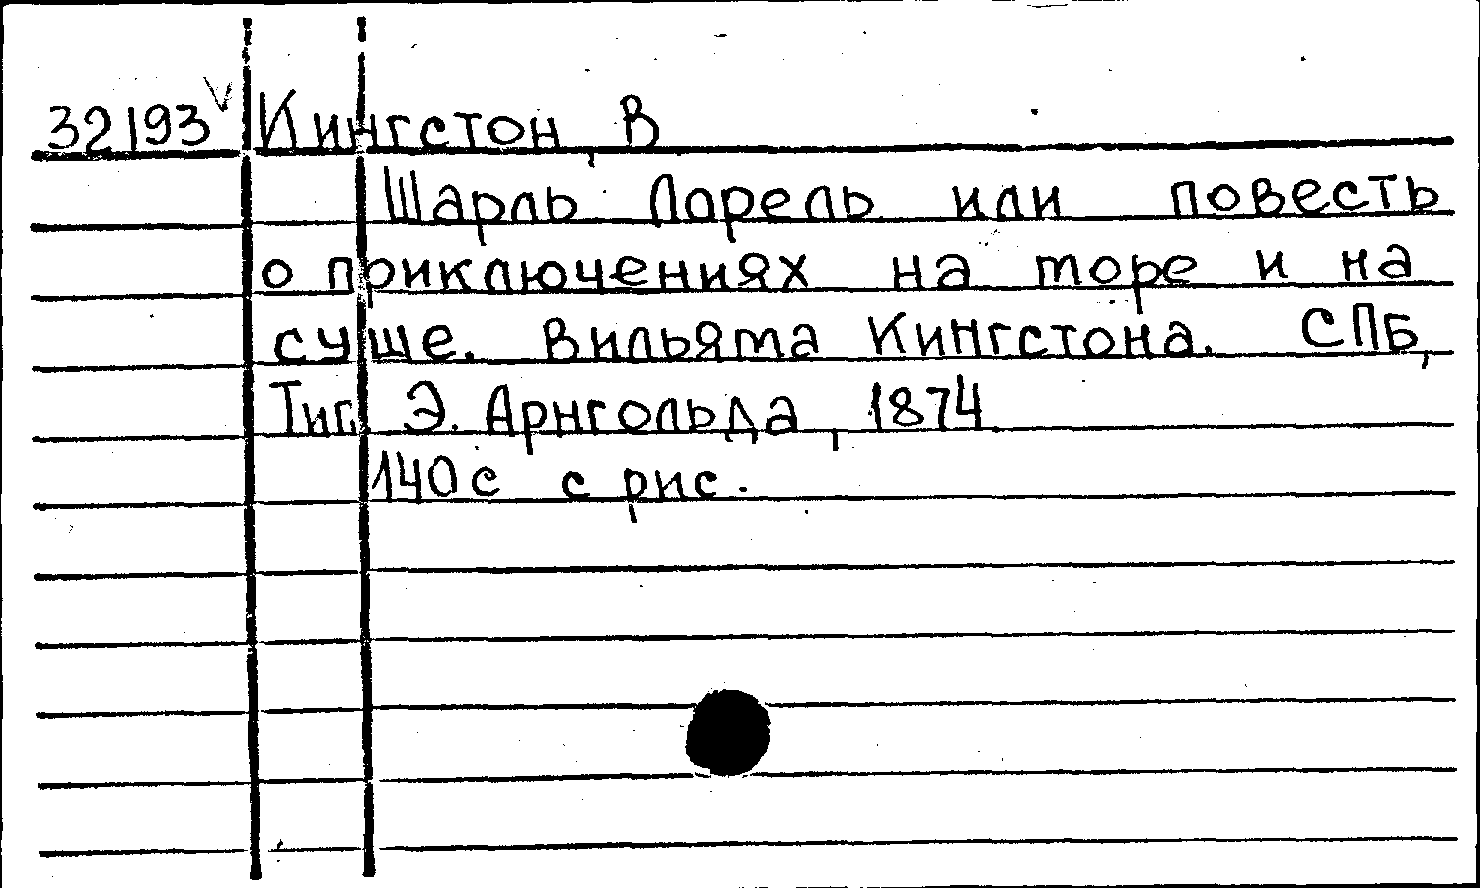 32193 V Кингстон, В
Шарль Лорель или повесть
о приключениях на море и на
суше. Вильяма Кингстона. СПБ,
Тип. Э. Арнгольда, 1874.
140с с рис.